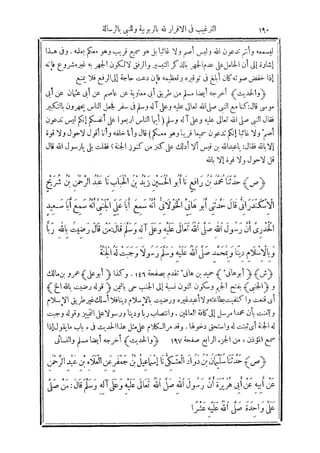 ١٩٠ الترغيب فى الاقرار لله بالربوبية وللنبى بالرسالة
ليسمعه وأنتم تدعون الله وليس أصم ولا غائبا بل هو سميع قريب وهو معكم بعلمه. وفى هـــذا
إشارة إلى أن الحامل على عدم الجهر بالذكر التيسير والرفق لالكون الجهر به غير مشروع فإنه
إذا خفض صوته كان أبلغ فى توقيره وتعظيمه فإن دعت حاجة إلى الرفع فلا يمنع
﴿والحديث﴾ أخرجه أيضا مسلم من طريق أبى معاوية عن عاصم عن أبى عثمان عن أبى
موسى قال: كنا مع النبى صلى الله تعالى عليه وعلى آله وسلم فى سفر فجعل الناس يجهرون بالتكبير
فقال النبى صلى الله تعالى عليه وعلى آله وسلم (أيها الناس اربعوا على أنفسكم إنكم ليس تدعون
أصم ولا غائبا إنكم تدعون سميعا قريبا وهو معكم) قال وأنا خلفه وأنا أقول لا حول ولا قوة
إلا بالله فقال: ياعبد الله بن قيس ألا أدلك على كنز من كنوز الجنة؟ فقلت بلى يارسول الله قال
قل لا حول ولا قوة إلا بالله
﴿ص﴾ حَدَّثَنَا مُحَمَّدُ بْنُ رَافِعٍ نَا أَبُو الْحُسَيْنِ زَيْدُ بْنُ الْحُبَابِ نَا عَبْدُ الرَّحْمٰنِ بْنُ شُرَيْحٍ
الْإِسْكَنْدَرَانِيُّ قَالَ حَدَّثَنِي أَبُو هَانِئٍ الْخَوْلَانِيُّ أَنَّهُ سَمِعَ أَبَا عَلِيٍّ الْجَنْبِيَّ أَنَّهُ سَمِعَ أَبَا سَعِيدٍ
الْخُدْرِيَّ أَنَّ رَسُولَ اللهِ صَلَّى اللهُ تَعَالَى عَلَيْهِ وَعَلَى آلِهِ وَسَلَّمَ قَالَ: مَنْ قَالَ رَضِيتُ بِاللهِ رَبًّا
وَبِالْإِسْلَامِ دِينًا وَبِمُحَمَّدٍ صَلَّى اللهُ تَعَالَى عَلَيْهِ وَعَلَى آلِهِ وَسَلَّمَ رَسُولًا وَجَبَتْ لَهُ الْجَنَّةُ
﴿ش﴾ ﴿أبو هانئ﴾ حميد بن هانئ تقدم بصفحة ١٤٦. وكذا ﴿أبو على﴾ عمرو بن مالك
و﴿الجنبى﴾ بفتح الجيم وسكون النون نسبة إلى الجنب حى باليمن ﴿قوله رضيت بالله الخ﴾
أى قنعت واكتفيت بطاعته ولا أعبد غيره ورضيت بالإسلام دينا فلا أسلك غير طريق الإسلام
وآمنت بأن محمدا مرسل إلى كافة العالمين. وانتصاب ربا ودينا ورسولا على التمييز وقوله وجبت
له الجنة أى ثبتت له واستحق دخولها. وقد مر الكلام على مثل هذا الحديث فى، باب ما يقول إذا
سمع المؤذن، من الجزء الرابع صفحة ١٩٧ ﴿والحديث﴾ أخرجه أيضا مسلم والنسائى
﴿ص﴾ حَدَّثَنَا سُلَيْمَانُ بْنُ دَاوُدَ الْعَتَكِيُّ نَا إِسْمَاعِيلُ بْنُ جَعْفَرٍ عَنِ الْعَلَاءِ بْنِ عَبْدِ الرَّحْمٰنِ
عَنْ أَبِيهِ عَنْ أَبِي هُرَيْرَةَ أَنَّ رَسُولَ اللهِ صَلَّى اللهُ تَعَالَى عَلَيْهِ وَعَلَى آلِهِ وَسَلَّمَ قَالَ: مَنْ صَلَّى
عَلَيَّ وَاحِدَةً صَلَّى اللهُ عَلَيْهِ عَشْرًا